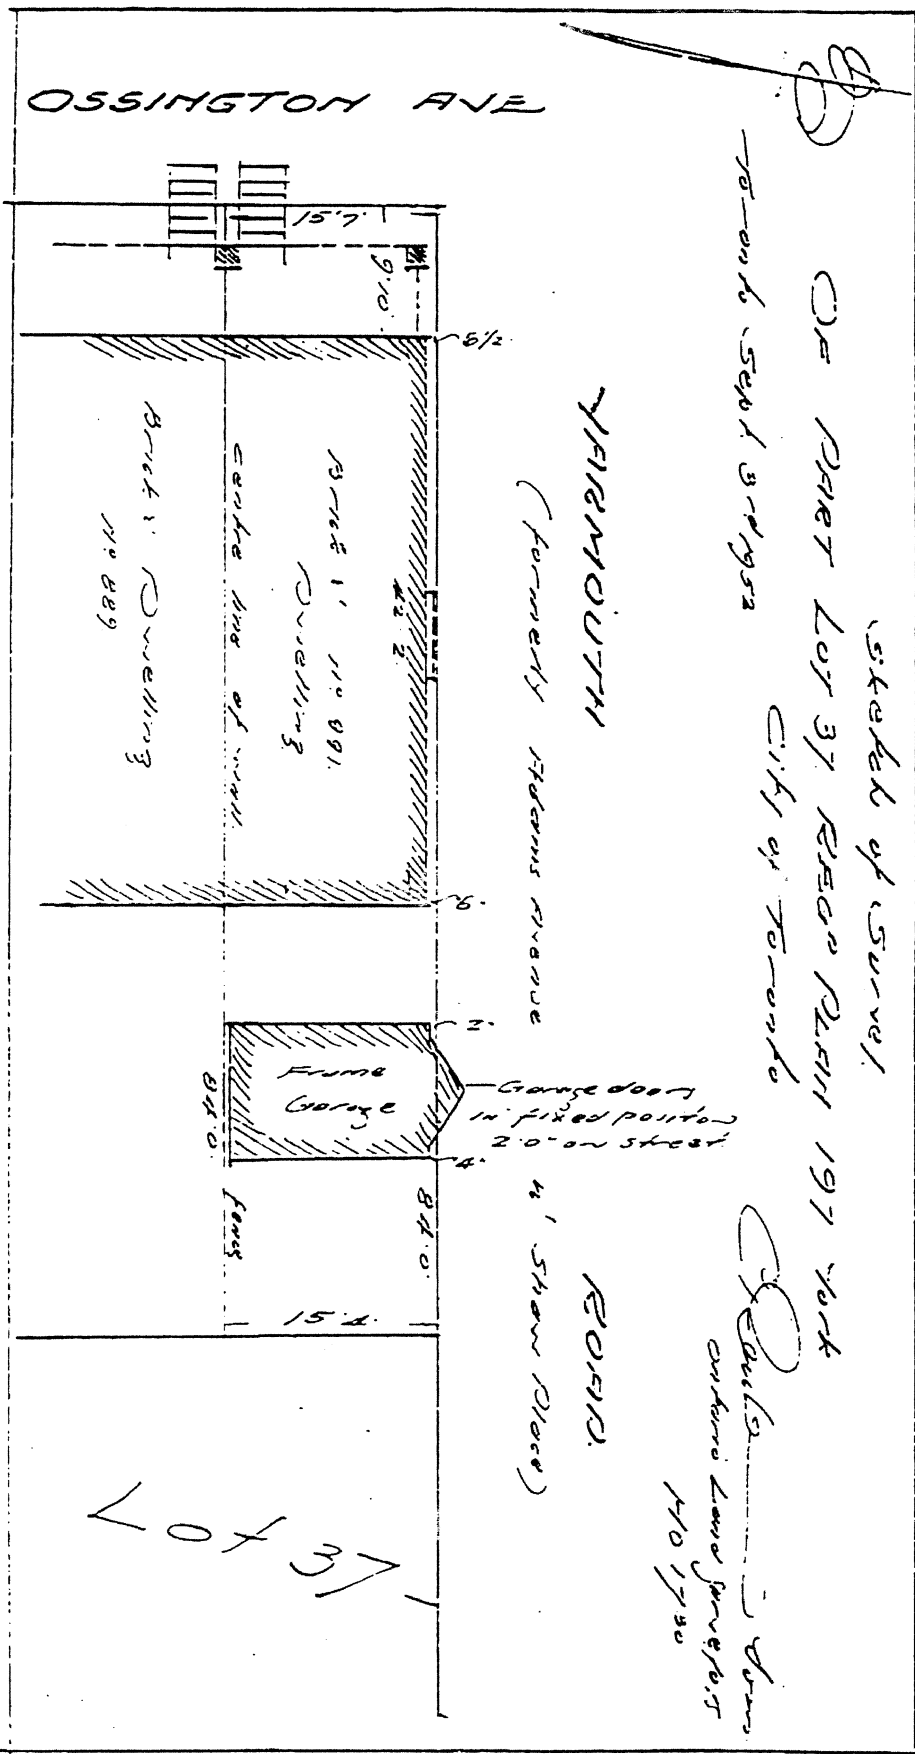 Sketch of Survey.
OF PART LOT 37 REG'D PLAN 197 York
City of Toronto
Toronto Sept 3rd 1952
Ontario Land Surveyors
No 1730
YARMOUTH ROAD.
(formerly Adams Avenue & Shaw Place)
OSSINGTON AVE
15'.7"
9'.10"
5½"
Brick Dwelling No 891.
42'.2"
centre line of wall.
Brick Dwelling
No 889
6"
2"
Frame
Garage
Garage doors
in fixed position
2'.0" on street.
4"
84'.0"
84'.0"
fence
15'.4"
Lot 37